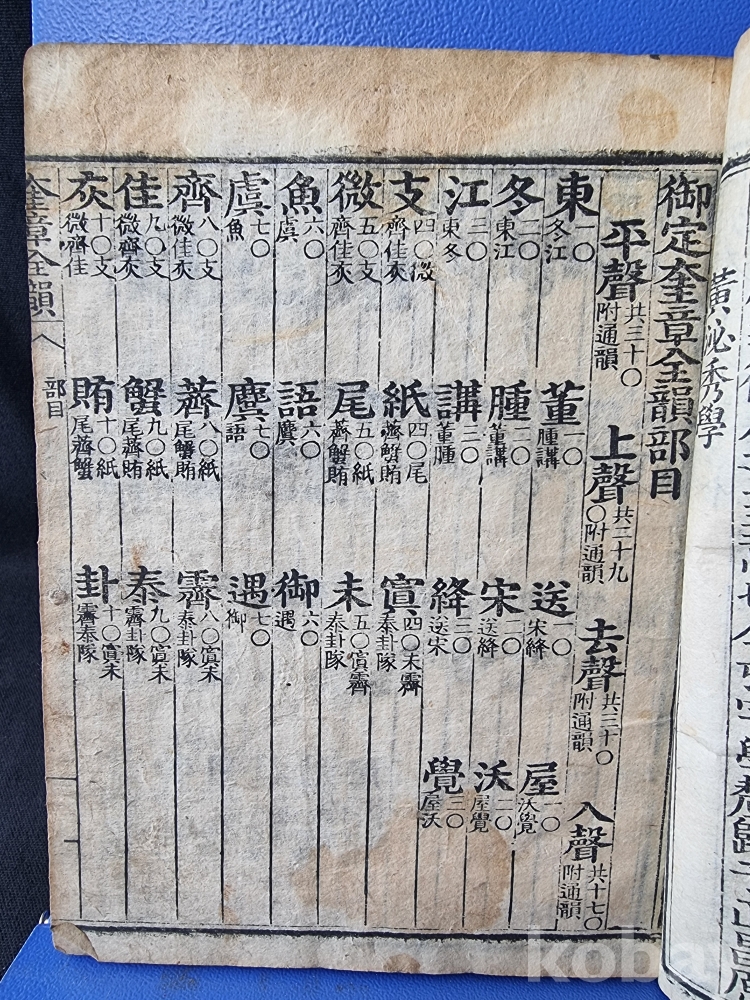 黃泌秀學
御定奎章全韻部目
平聲 共三十○附通韻 上聲 共二十九○附通韻 去聲 共三十○附通韻 入聲 共十七○附通韻
東 一○冬江 董 一○腫講 送 一○宋絳 屋 一○沃覺
冬 二○東江 腫 二○董講 宋 二○送絳 沃 二○屋覺
江 三○東冬 講 三○董腫 絳 三○送宋 覺 三○屋沃
支 四○微齊佳灰 紙 四○尾薺蟹賄 寘 四○未霽泰卦隊
微 五○支齊佳灰 尾 五○紙薺蟹賄 未 五○寘霽泰卦隊
魚 六○虞 語 六○麌 御 六○遇
虞 七○魚 麌 七○語 遇 七○御
齊 八○支微佳灰 薺 八○紙尾蟹賄 霽 八○寘未泰卦隊
佳 九○支微齊灰 蟹 九○紙尾薺賄 泰 九○寘未霽卦隊
灰 十○支微齊佳 賄 十○紙尾薺蟹 卦 十○寘未霽泰隊
奎章全韻 部目
kobay